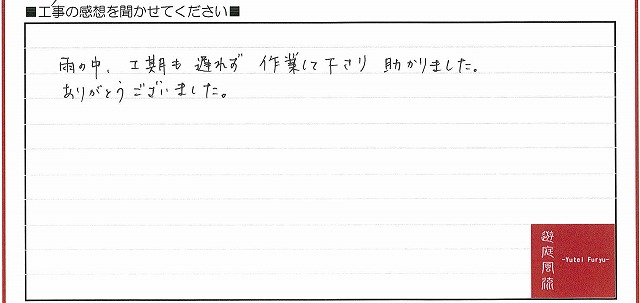 ■工事の感想を聞かせてください■
雨の中、工期も遅れず作業して下さり助かりました。
ありがとうございました。
遊庭風流
-Yutei Furyu-